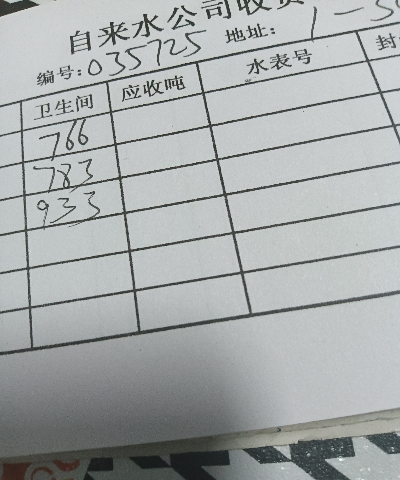 自来水公司收费
编号: 035725 地址: 1-
卫生间 应收吨 水表号 封
766
783
933